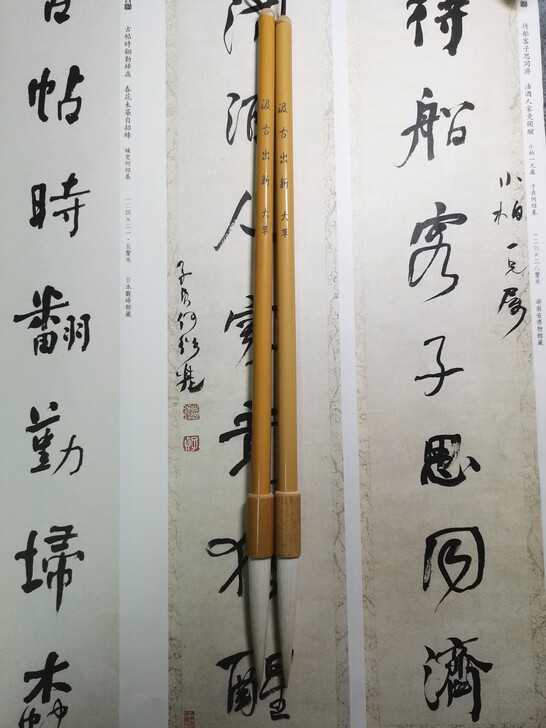 待船客子思同濟 酒人家竟獨醒 小柏一兄屬 子貞何紹基 一二六×二八釐米 湖南省博物館藏
小柏一兄屬
待船客子思同濟
酒人家竟獨醒
汲古出新 大草
汲古出新 大草
子貞何紹基
聯
古帖時翻勤埽蠹 春花未落自招蜂 蝯叟何紹基 一二四×二一·五釐米 日本觀峰館藏
古帖時翻勤埽